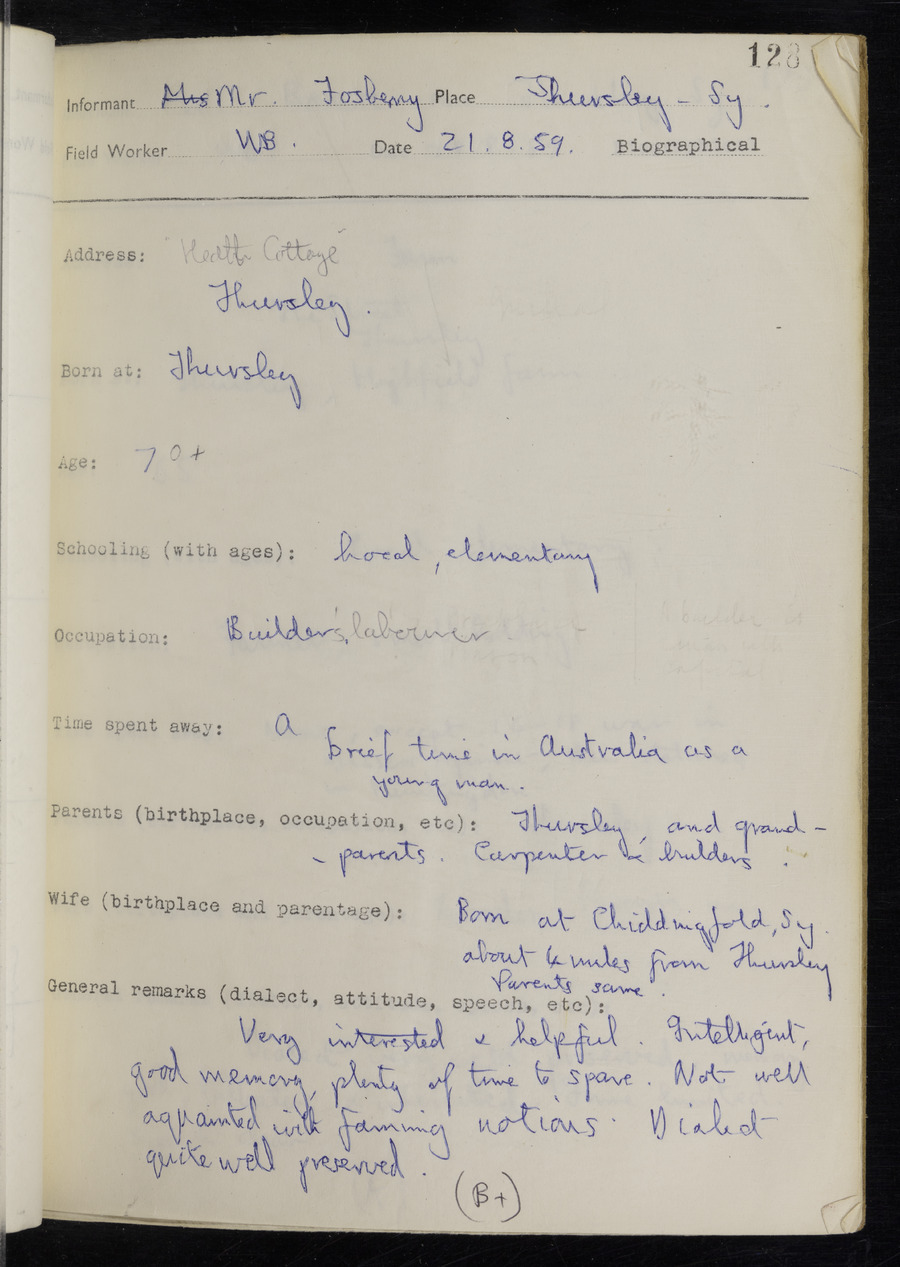 128
Informant Mrs Mr. Fosberry Place Thursley - Sy.
Field Worker WB. Date 21.8.59. Biographical
Address: "Heath Cottage"
Thursley.
Born at: Thursley
Age: 70+
Schooling (with ages): Local, elementary
Occupation: Builder's labourer
Time spent away: A
brief time in Australia as a
young man.
Parents (birthplace, occupation, etc): Thursley, and grand-
- parents. Carpenter & builders.
Wife (birthplace and parentage): Born at Chiddingfold, Sy.
about 4 miles from Thursley
Parents same.
General remarks (dialect, attitude, speech, etc):
Very interested & helpful. Intelligent,
good memory, plenty of time to spare. Not well
aquainted with farming notions. Dialect
quite well preserved.
(B+)